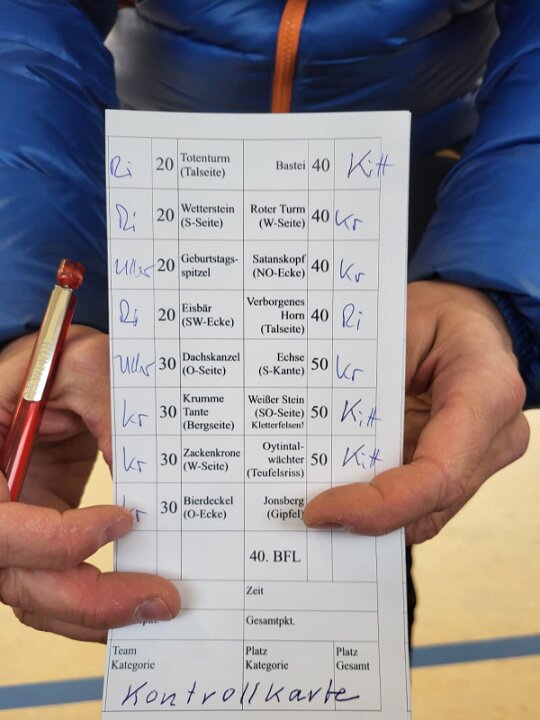 Ri 20 Totenturm Bastei 40 Kitt
(Talseite)
Ri 20 Wetterstein Roter Turm 40 Kr
(S-Seite) (W-Seite)
Uller 20 Geburtstags- Satanskopf 40 Kr
spitzel (NO-Ecke)
Ri 20 Eisbär Verborgenes 40 Ri
(SW-Ecke) Horn
(Talseite)
Uller 30 Dachskanzel Echse 50 Kr
(O-Seite) (S-Kante)
Kr 30 Krumme Weißer Stein 50 Kitt
Tante (SO-Seite)
(Bergseite) Kletterfelsen!
Kr 30 Zackenkrone Oytintal- 50 Kitt
(W-Seite) wächter
(Teufelsriss)
Kr 30 Bierdeckel Jonsberg
(O-Ecke) (Gipfel)
40. BFL
Zeit
Gesamtpkt.
Team Platz Platz
Kategorie Kategorie Gesamt
Kontrollkarte